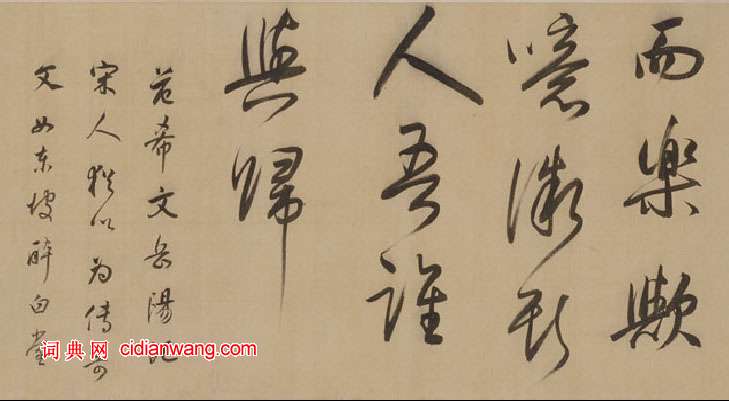 而樂歟
噫微斯
人吾誰
與歸
范希文岳陽記
宋人猶以為傳奇
文如東坡醉白堂
词典网 cidianwang.com